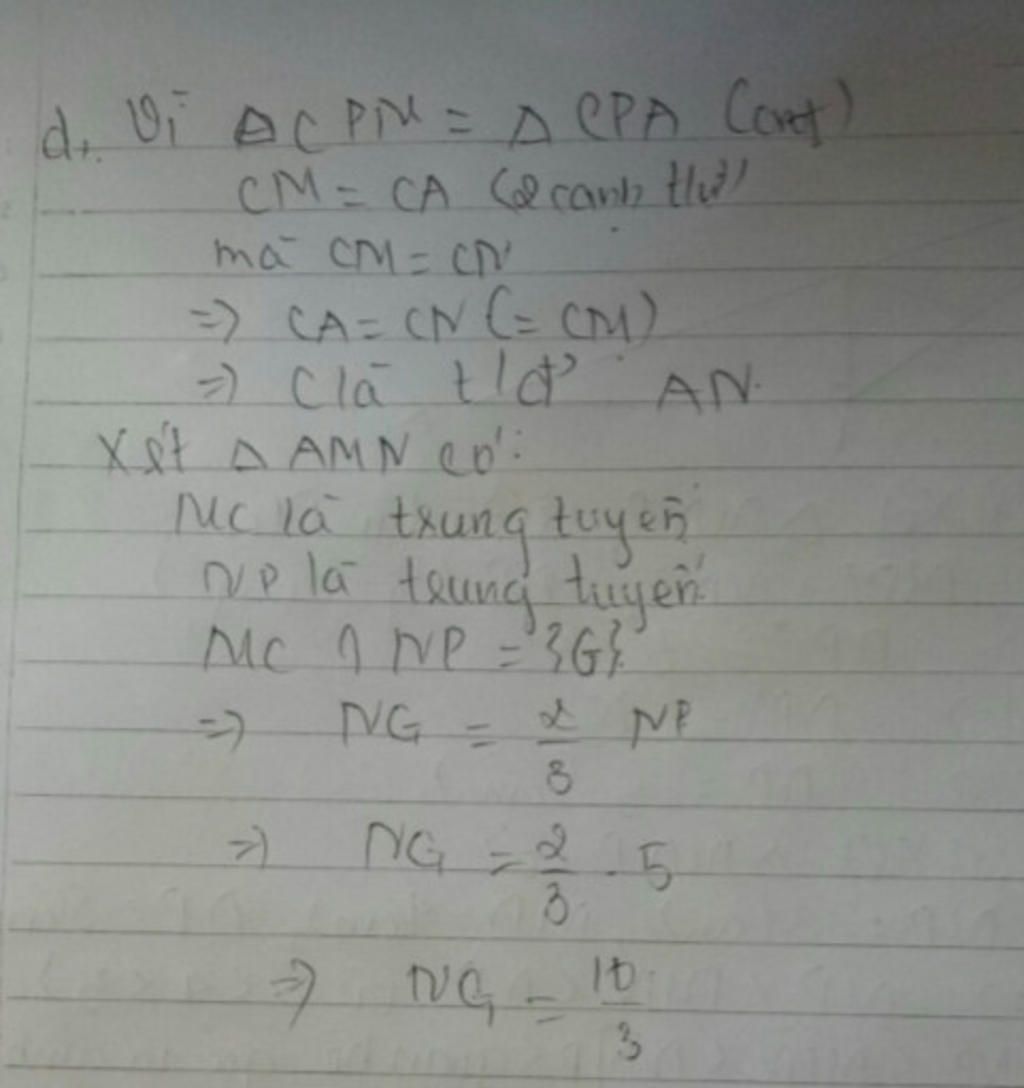 d, Vì ΔCPM = ΔCPA (cmt)
CM = CA (2 cạnh t/ứ)
mà CM = CN
=> CA = CN (= CM)
=> C là t/đ' AN.
Xét Δ AMN có:
MC là trung tuyến
NP là trung tuyến
MC ∩ NP = {G}
=> NG = 2/3 NP
=> NG = 2/3 . 5
=> NG = 10/3